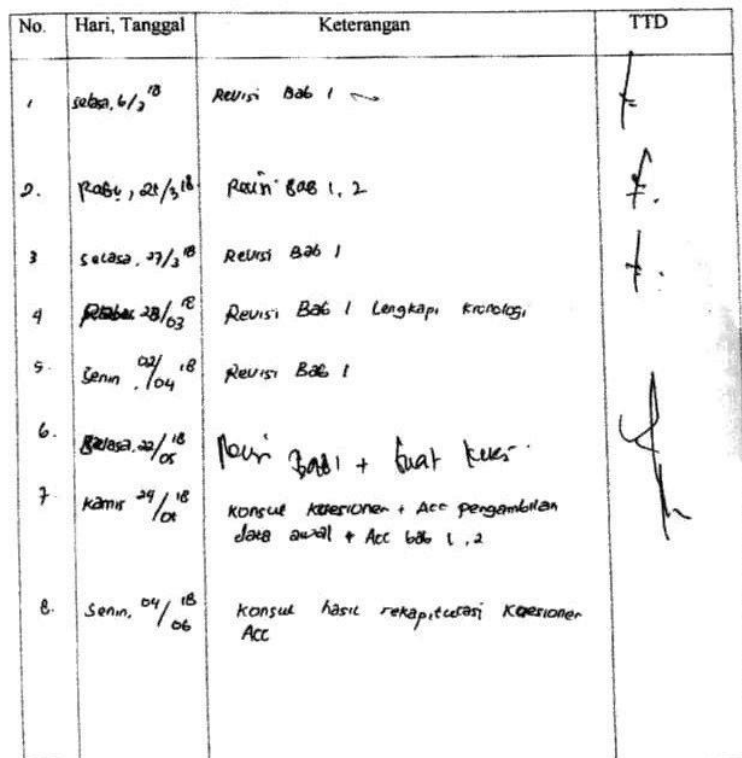 No. Hari, Tanggal Keterangan TTD
1 selasa, 6/3 18 Revisi Bab 1
2. Rabu, 21/3 18 Revisi Bab 1, 2
3 selasa, 27/3 18 Revisi Bab 1
4 28/03 18 Revisi Bab 1 Lengkapi kronologi
5. Senin, 02/04 18 Revisi Bab 1
6. Selasa, 22/05 18 Revisi Bab 1 + buat
7. Kamis 24/05 18 Konsul Kuesioner + Acc pengambilan
data awal + Acc bab 1, 2
8. Senin, 04/06 18 Konsul hasil rekapitulasi Kuesioner
Acc